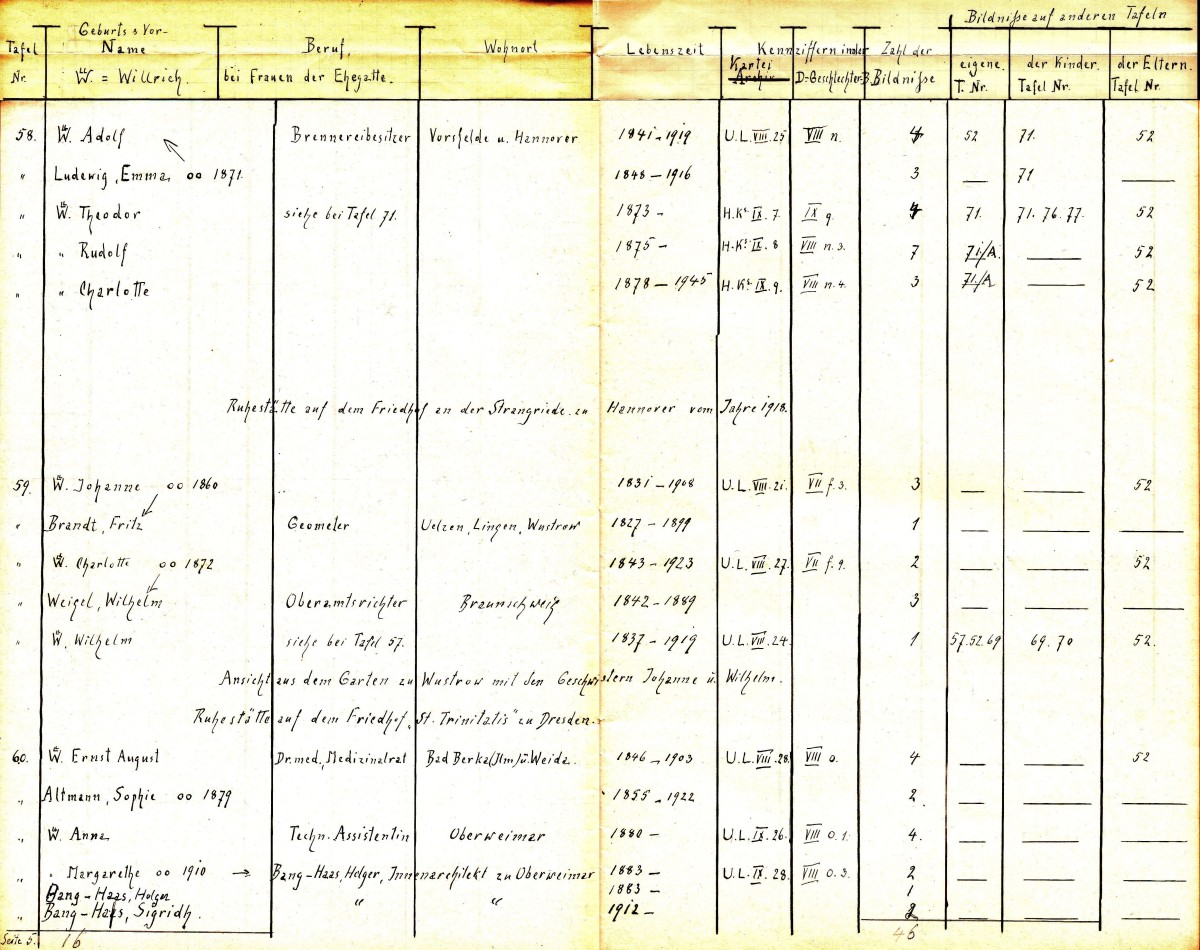 Bildnisse auf anderen Tafeln
Tafel Nr. | Geburts & Vor-Name W̋. = Willrich. | Beruf, bei Frauen der Ehegatte. | Wohnort | Lebenszeit | Kennziffern in der Kartei Archiv | D=Geschlechter=B. | Zahl der Bildnisse | eigene. T. Nr. | der Kinder. Tafel Nr. | der Eltern. Tafel Nr.
58. W̋. Adolf Brennereibesitzer Vorsfelde u. Hannover 1841–1919 U.L. VIII. 25 VIII n. 4 52 71. 52
" Ludewig, Emma oo 1871. 1848–1916 3 — 71 —
" W̋. Theodor siehe bei Tafel 71. 1873– H.Kt. IX. 7. IX q. 4 71. 71. 76. 77. 52
" " Rudolf 1875– H.Kt. IX. 8 VIII n. 3. 7 71./A. — 52
" " Charlotte 1878–1945 H.Kt. IX. 9. VIII n. 4. 3 71./A — 52
Ruhestätte auf dem Friedhof an der Strangriede zu Hannover vom Jahre 1918.
59. W̋. Johanne oo 1860 1831–1908 U.L. VIII. 21. VII f. 3. 3 — — 52
" Brandt, Fritz Geometer Uelzen, Lingen, Wustrow 1827–1899 1 — — —
" W̋. Charlotte oo 1872 1843–1923 U.L. VIII. 27. VII f. 9. 2 — — 52
" Weigel, Wilhelm Oberamtsrichter Braunschweig 1842–1889 3 — — —
" W̋. Wilhelm siehe bei Tafel 57. 1837–1919 U.L. VIII. 24. 1 57. 52. 69 69. 70 52.
Ansicht aus dem Garten zu Wustrow mit den Geschwistern Johanne u. Wilhelm.
Ruhestätte auf dem Friedhof „St. Trinitatis" zu Dresden.
60. W̋. Ernst August Dr. med., Medizinalrat Bad Berka (Ilm) u. Weida. 1846–1903 U.L. VIII. 28. VIII o. 4 — — 52
" Altmann, Sophie oo 1879 1855–1922 2. — — —
" W̋. Anna Techn. Assistentin Oberweimar 1880– U.L. IX. 26. VIII o. 1. 4. — — —
" " Margarethe oo 1910 → Bang-Haas, Holger, Innenarchitekt zu Oberweimar 1883– U.L. IX. 28. VIII o. 3. 2 — — —
Bang-Haas, Holger " " 1883– 1
" Bang-Haas, Sigridh. 1912– 2 — — —
Seite 5. 16 46